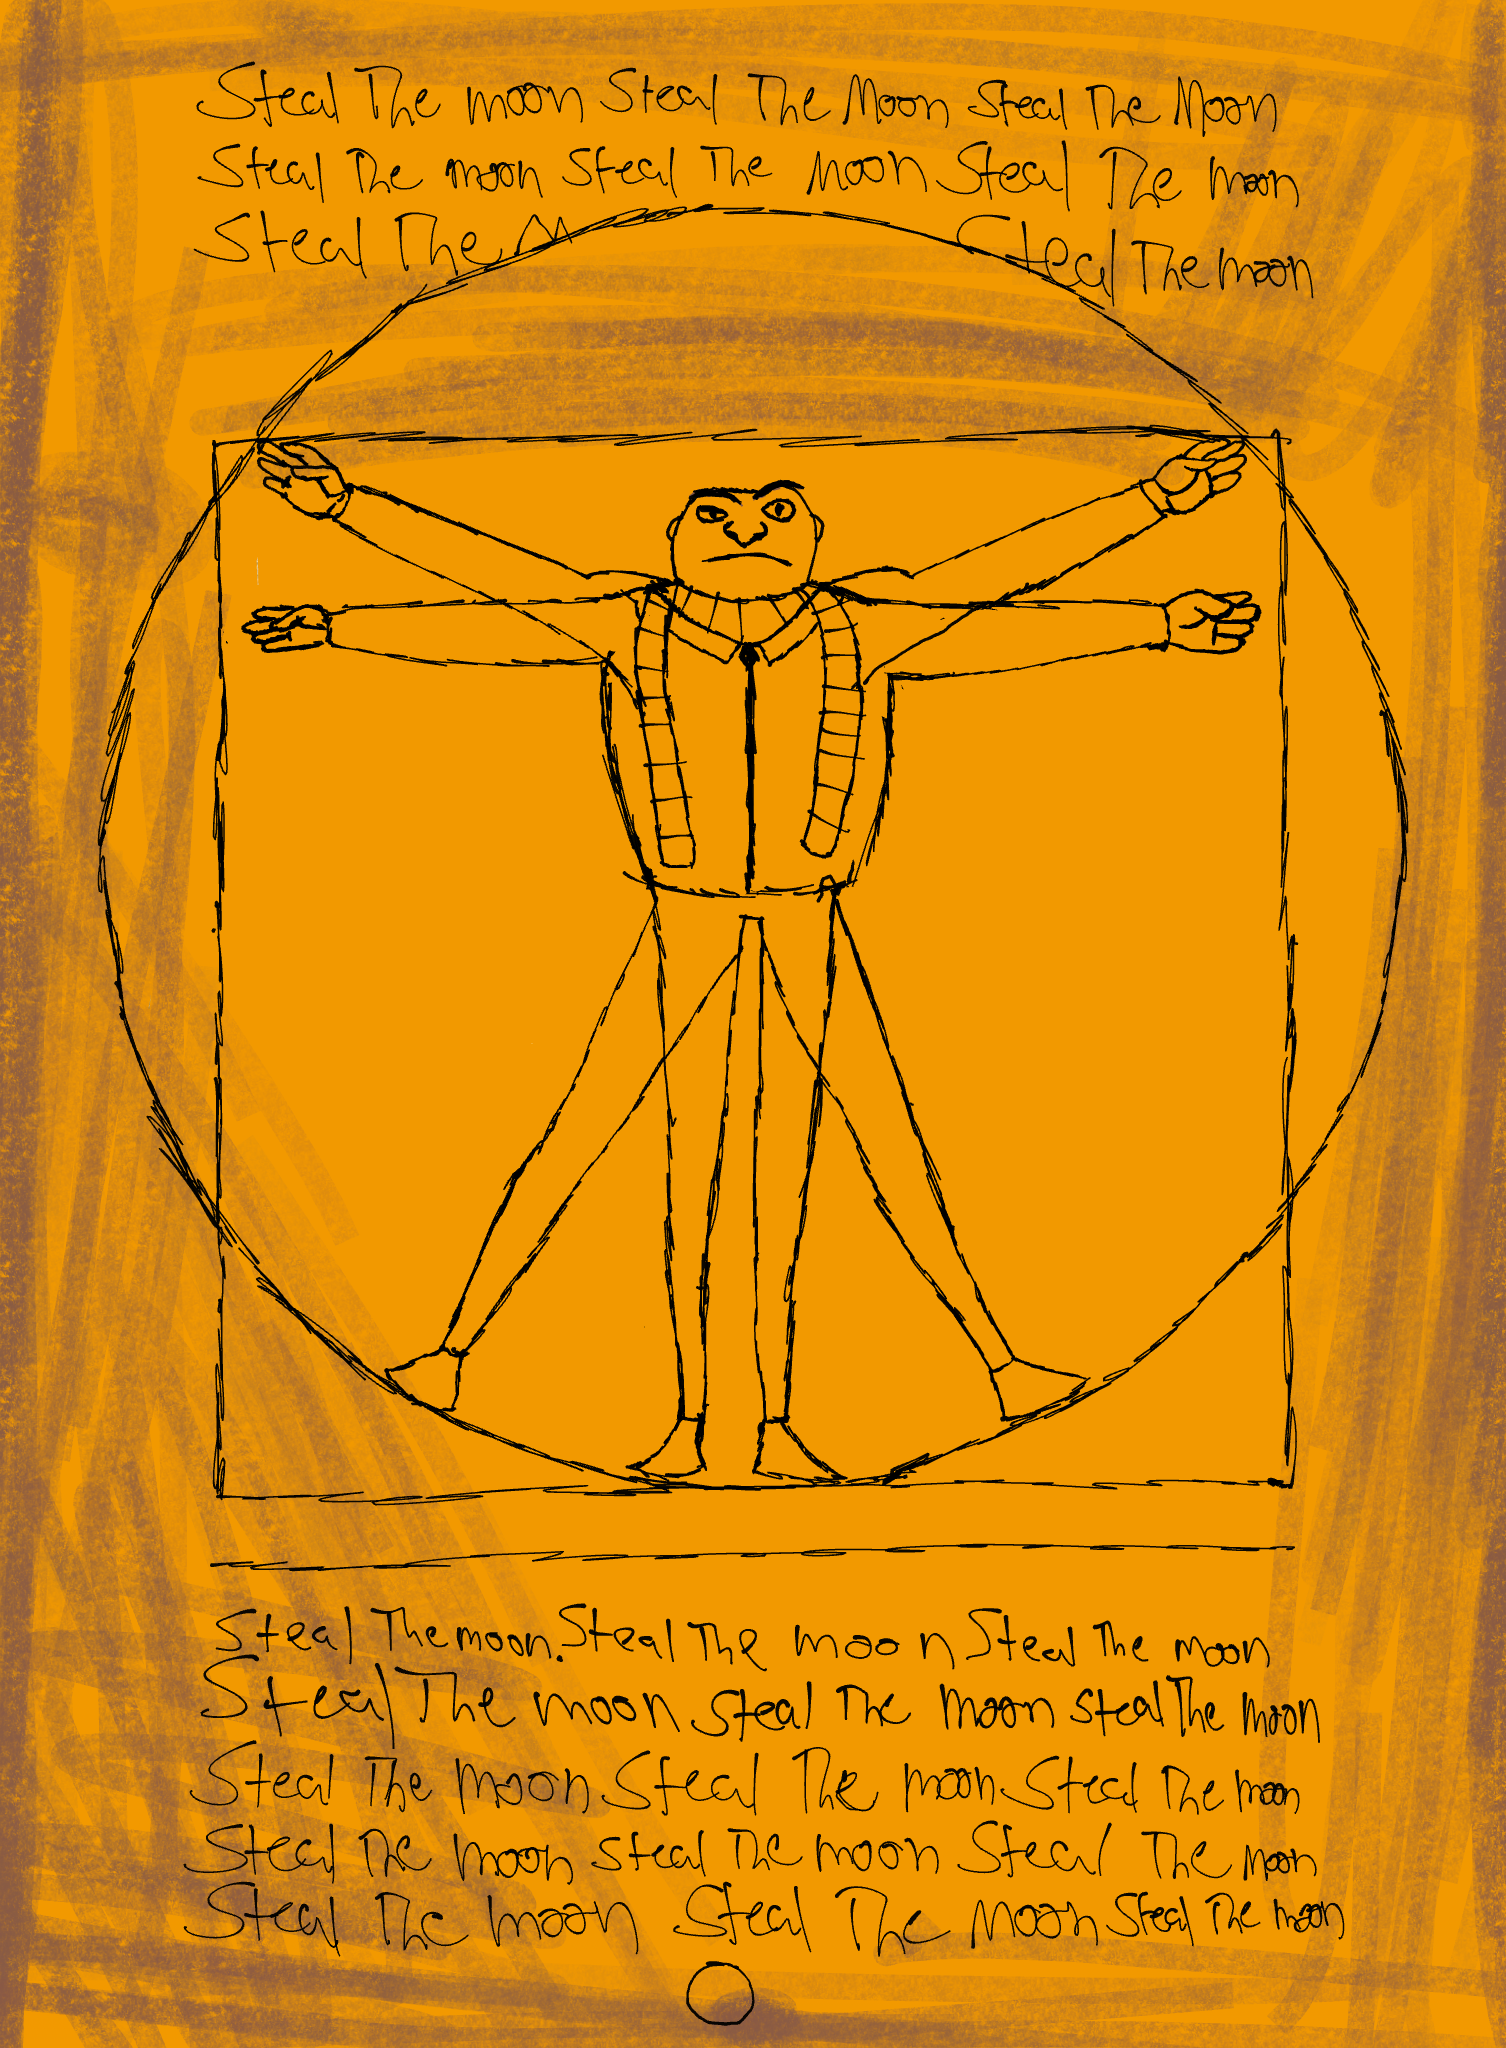 Steal The moon Steal The Moon Steal The Moon
Steal The moon Steal The Moon Steal The moon
Steal The M Steal The moon
Steal The moon. Steal The moon Steal The moon
Steal The moon Steal The moon Steal The moon
Steal The moon Steal The moon Steal The moon
Steal The moon Steal The moon Steal The moon
Steal The moon Steal The Moon Steal The moon